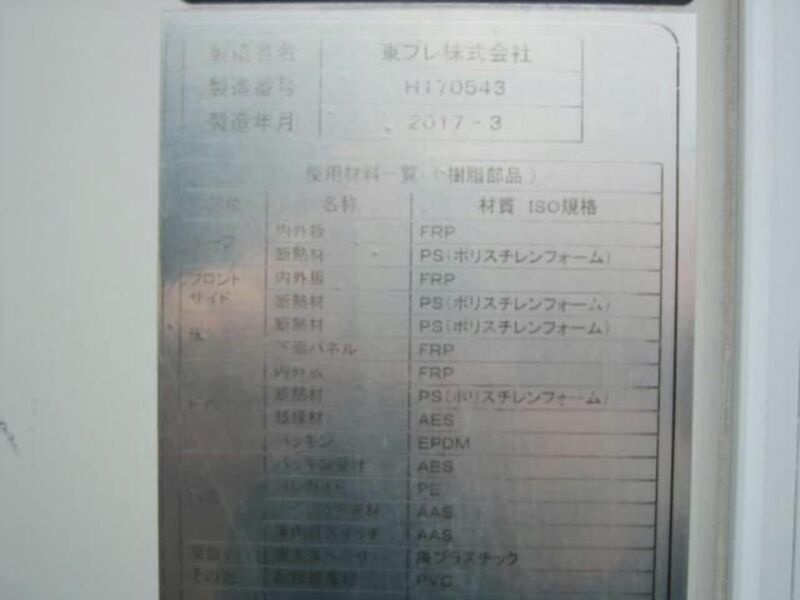 製造者名 東プレ株式会社
製造番号 H170543
製造年月 2017-3
使用材料一覧（樹脂部品）
名称 材質 ISO規格
内外板 FRP
断熱材 PS(ポリスチレンフォーム)
フロント 内外板 FRP
サイド 断熱材 PS(ポリスチレンフォーム)
床 断熱材 PS(ポリスチレンフォーム)
下面パネル FRP
内外板 FRP
ドア 断熱材 PS(ポリスチレンフォーム)
AES
パッキン EPDM
パッキン受け AES
PE
AAS
庫内灯スイッチ AAS
再プラスチック
その他 PVC